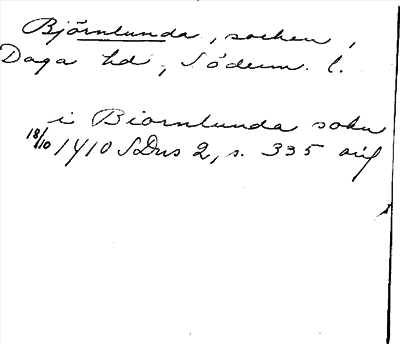 Björnlunda, socken,
Daga hd, Söderm. l.
i Biornlunda sokn
18/10 1410 SDns 2, s. 335 avs